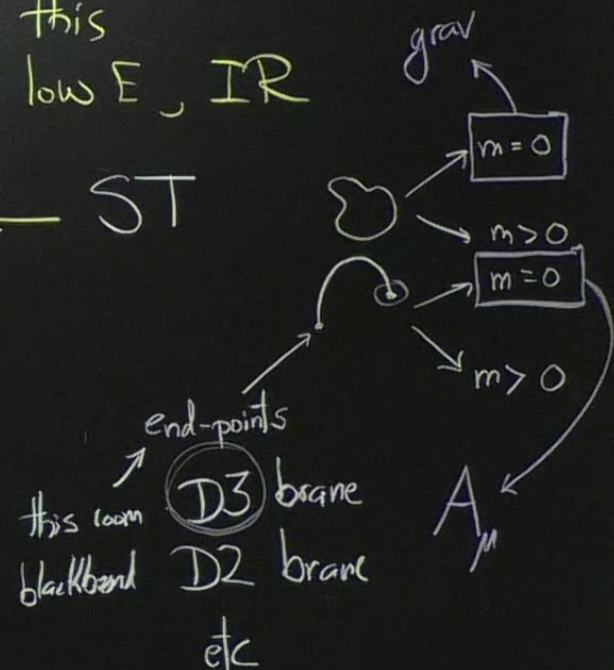 this
low E, IR
grav
m = 0
ST
m > 0
m = 0
m > 0
end-points
this room D3 brane
blackboard D2 brane
Aμ
etc